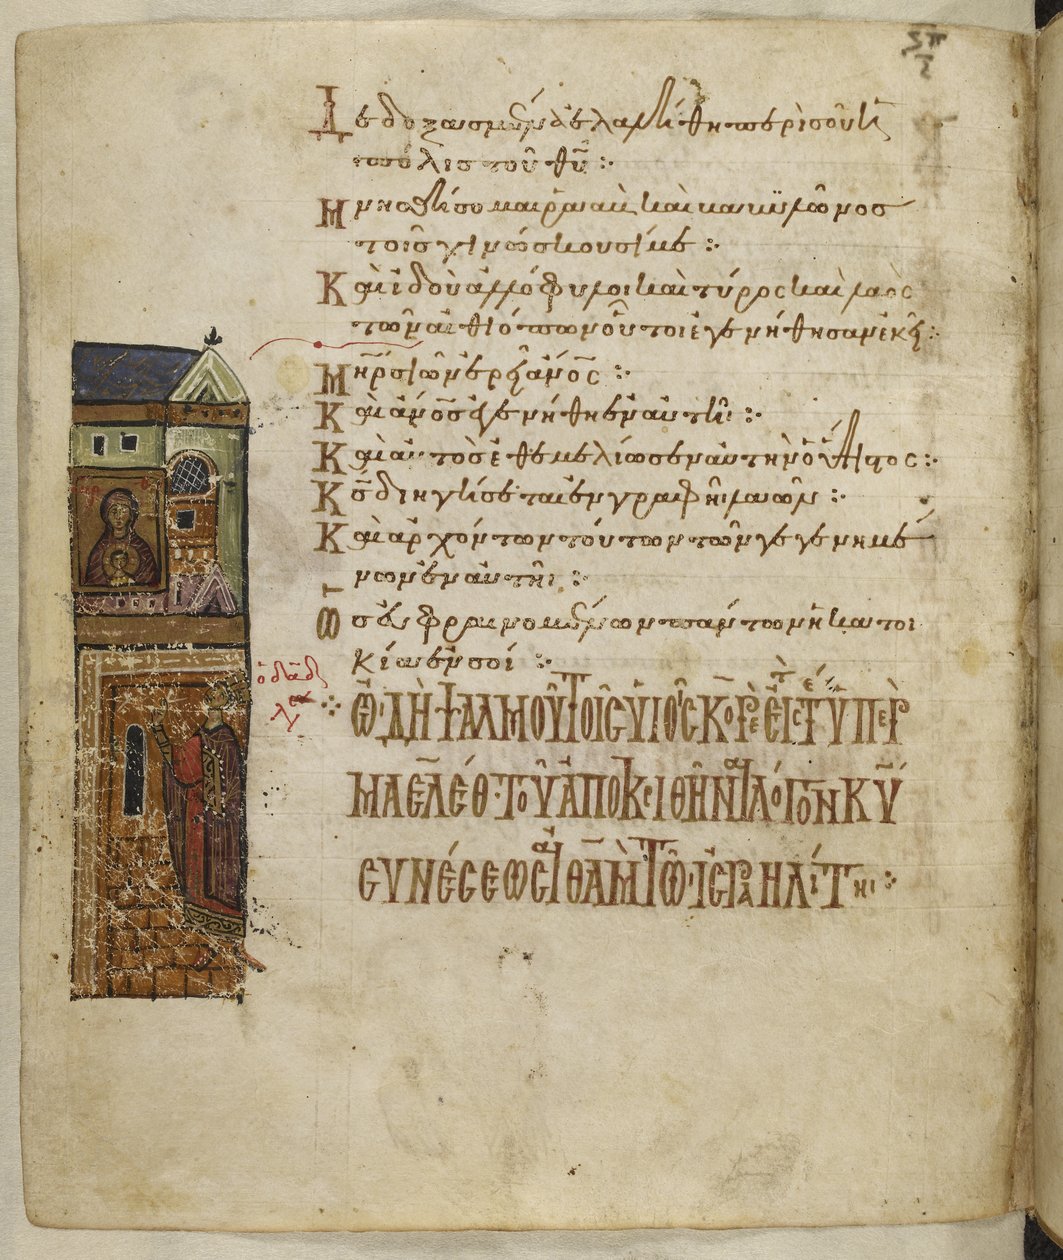 Δεδοξασμένα ἐλαλήθη περὶ σοῦ ἡ
πόλις τοῦ θῦ :·
Μνησθήσομαι ῥαὰβ καὶ βαβυλῶνος
τοῖς γινώσκουσί με :·
Καὶ ἰδοὺ ἀλλόφυλοι καὶ τύρος καὶ λαὸς
τῶν αἰθιόπων οὗτοι ἐγενήθησαν ἐκεῖ :·
Μηρ σιὼν ἐρεῖ ἄνος :·
Καὶ ἄνος ἐγενήθη ἐν αὐτῆι :·
Καὶ αὐτὸς ἐθεμελίωσεν αὐτὴν ὁ ὕψιστος :·
Κς διηγήσεται ἐν γραφῆι λαῶν :·
Καὶ ἀρχόντων τούτων τῶν γεγενημέ
νων ἐν αὐτῆι :·
Ὡς εὐφραινομένων πάντων ἡ κατοι
κία ἐν σοί :·
ὁ δαδ
ὨΔῊ ΨΑΛΜΟΥ ΤΟΙΣ ΥΙΟΙΣ ΚΟΡΕ ΕἸΣ Τ ΤΈ ΥΠΕΡ
ΜΑΕΛΈΘ· ΤΟΥ ἈΠΟΚΡΙΘΗΝΑΙ ΛΌΓΟΝ Κ
ΣΥΝΈΣΕΩΣ ΑἸΘᾺΜ ΤΩ ἸΣΡΑΗΛΊΤΗΙ :·